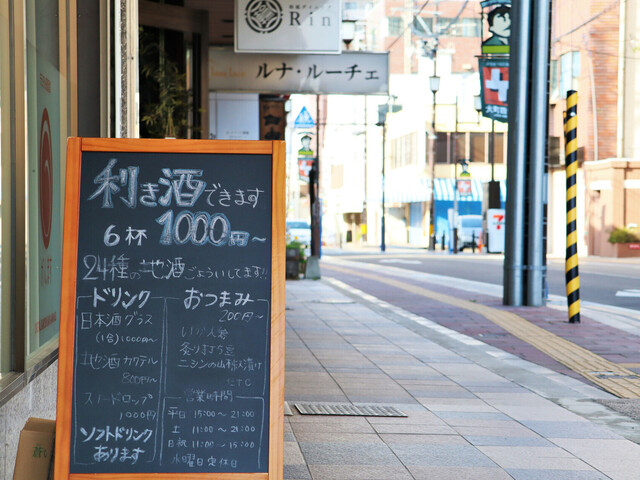 Rin
ルナ・ルーチェ
利き酒できます
6杯 1000円~
24種の地酒ごようしてます!!
ドリンク
日本酒グラス
(1合)1000円~
地酒カクテル
800円~
1000円
ソフトドリンク
あります
おつまみ
200円~
いか人参
ニシンの山椒漬け
などなど
営業時間
平日 15:00~21:00
土 11:00~21:00
日祝 11:00~19:00
水曜日定休日